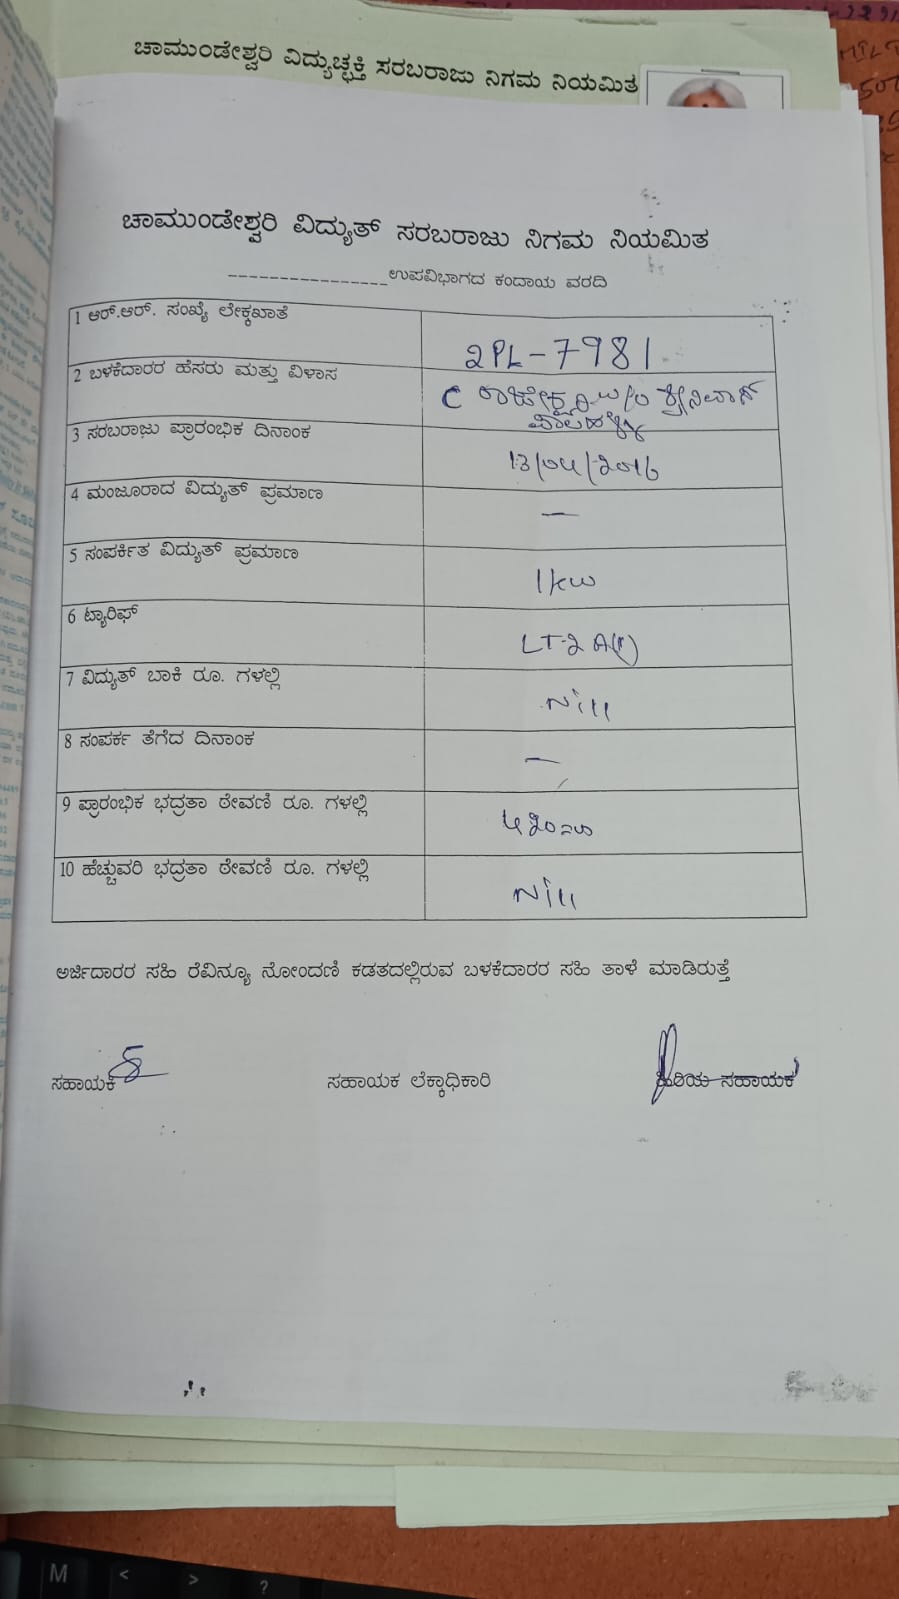 ಚಾಮುಂಡೇಶ್ವರಿ ವಿದ್ಯುಚ್ಛಕ್ತಿ ಸರಬರಾಜು ನಿಗಮ ನಿಯಮಿತ
ಚಾಮುಂಡೇಶ್ವರಿ ವಿದ್ಯುತ್ ಸರಬರಾಜು ನಿಗಮ ನಿಯಮಿತ
----------------ಉಪವಿಭಾಗದ ಕಂದಾಯ ವರದಿ
1 ಆರ್.ಆರ್. ಸಂಖ್ಯೆ ಲೇಕ್ಕಖಾತೆ
2PL-7981
2 ಬಳಕೆದಾರರ ಹೆಸರು ಮತ್ತು ವಿಳಾಸ
C ರಾಜೇಶ್ವರಿ W/O ಶ್ರೀನಿವಾಸ್
3 ಸರಬರಾಜು ಪ್ರಾರಂಭಿಕ ದಿನಾಂಕ
13/04/2016
4 ಮಂಜೂರಾದ ವಿದ್ಯುತ್ ಪ್ರಮಾಣ
—
5 ಸಂಪರ್ಕಿತ ವಿದ್ಯುತ್ ಪ್ರಮಾಣ
1kw
6 ಟ್ಯಾರಿಫ್
LT-2 A(1)
7 ವಿದ್ಯುತ್ ಬಾಕಿ ರೂ. ಗಳಲ್ಲಿ
Nill
8 ಸಂಪರ್ಕ ತೆಗೆದ ದಿನಾಂಕ
—
9 ಪ್ರಾರಂಭಿಕ ಭದ್ರತಾ ಠೇವಣಿ ರೂ. ಗಳಲ್ಲಿ
10 ಹೆಚ್ಚುವರಿ ಭದ್ರತಾ ಠೇವಣಿ ರೂ. ಗಳಲ್ಲಿ
Nill
ಅರ್ಜಿದಾರರ ಸಹಿ ರೆವಿನ್ಯೂ ನೋಂದಣಿ ಕಡತದಲ್ಲಿರುವ ಬಳಕೆದಾರರ ಸಹಿ ತಾಳೆ ಮಾಡಿರುತ್ತೆ
ಸಹಾಯಕ ಸಹಾಯಕ ಲೆಕ್ಕಾಧಿಕಾರಿ ಹಿರಿಯ ಸಹಾಯಕ
M < > ?